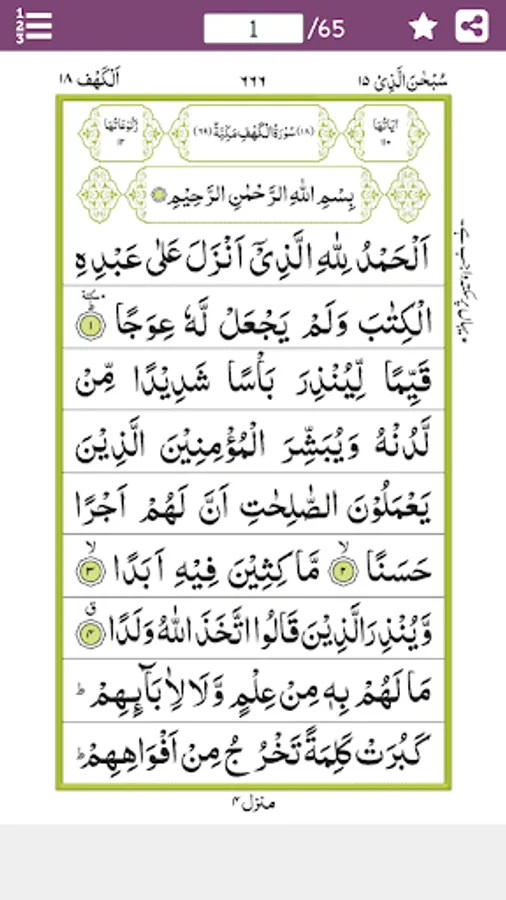 1 2 3
1 /65
سُبْحٰنَ الَّذِىْ ١٥
٦٦٦
اَلْكَهْف ١٨
اٰيَاتُهَا ١١٠
(١٨) سُوْرَةُ الْكَهْفِ مَكِّيَّةٌ (٦٩)
رُكُوْعَاتُهَا ١٢
بِسْمِ اللّٰهِ الرَّحْمٰنِ الرَّحِيْمِ
اَلْحَمْدُ لِلّٰهِ الَّذِىْۤ اَنْزَلَ عَلٰى عَبْدِهِ
الْكِتٰبَ وَلَمْ يَجْعَلْ لَّهٗ عِوَجًا ١
قَيِّمًا لِّيُنْذِرَ بَاْسًا شَدِيْدًا مِّنْ
لَّدُنْهُ وَيُبَشِّرَ الْمُؤْمِنِيْنَ الَّذِيْنَ
يَعْمَلُوْنَ الصّٰلِحٰتِ اَنَّ لَهُمْ اَجْرًا
حَسَنًا ۙ ٢ مَّاكِثِيْنَ فِيْهِ اَبَدًا ۙ ٣
وَّيُنْذِرَ الَّذِيْنَ قَالُوا اتَّخَذَ اللّٰهُ وَلَدًا ق ٤
مَا لَهُمْ بِهٖ مِنْ عِلْمٍ وَّلَا لِاٰبَآئِهِمْ ؕ
كَبُرَتْ كَلِمَةً تَخْرُجُ مِنْ اَفْوَاهِهِمْ ؕ
منزل ٤